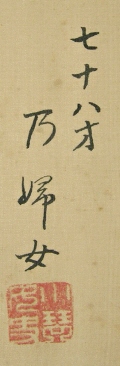 七十八才
乃婦女